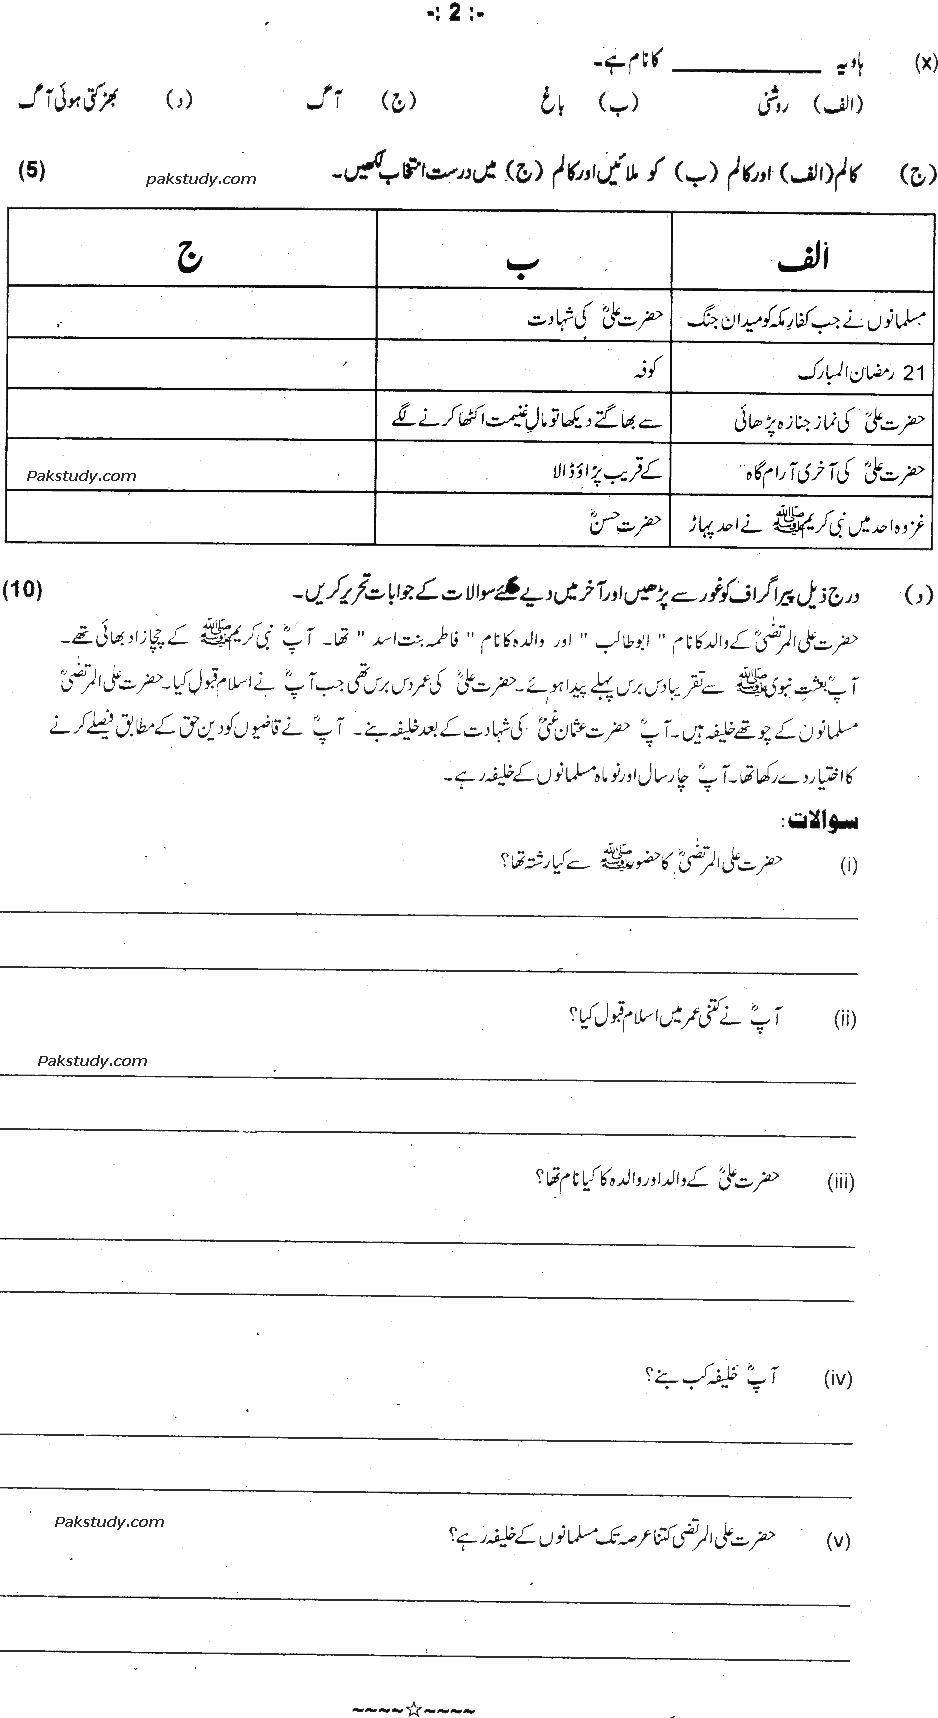 -: 2 :-
(x) ہاویہ __________ کا نام ہے۔
(الف) روشنی (ب) باغ (ج) آگ (د) بھڑکتی ہوئی آگ
(ج) کالم (الف) اور کالم (ب) کو ملائیں اور کالم (ج) میں درست انتخاب لکھیں۔ pakstudy.com (5)
الف ب ج
مسلمانوں نے جب کفارِ مکہ کو میدان جنگ حضرت علیؓ کی شہادت
21 رمضان المبارک کوفہ
حضرت علیؓ کی نماز جنازہ پڑھائی سے بھاگتے دیکھا تو مالِ غنیمت اکٹھا کرنے لگے
حضرت علیؓ کی آخری آرام گاہ کے قریب پڑاؤ ڈالا Pakstudy.com
غزوہ احد میں نبی کریم ﷺ نے احد پہاڑ حضرت حسنؓ
(د) درج ذیل پیراگراف کو غور سے پڑھیں اور آخر میں دیے گئے سوالات کے جوابات تحریر کریں۔ (10)
حضرت علی المرتضٰیؓ کے والد کا نام " ابو طالب " اور والدہ کا نام " فاطمہ بنت اسد " تھا۔ آپؓ نبی کریم ﷺ کے چچا زاد بھائی تھے۔
آپؓ بعثتِ نبوی ﷺ سے تقریبا دس برس پہلے پیدا ہوئے۔ حضرت علیؓ کی عمر دس برس تھی جب آپؓ نے اسلام قبول کیا۔ حضرت علی المرتضٰیؓ
مسلمانوں کے چوتھے خلیفہ ہیں۔ آپؓ حضرت عثمان غنیؓ کی شہادت کے بعد خلیفہ بنے۔ آپؓ نے قاضیوں کو دین حق کے مطابق فیصلے کرنے
کا اختیار دے رکھا تھا۔ آپؓ چار سال اور نو ماہ مسلمانوں کے خلیفہ رہے۔
سوالات:
(i) حضرت علی المرتضٰیؓ کا حضور ﷺ سے کیا رشتہ تھا؟
(ii) آپؓ نے کتنی عمر میں اسلام قبول کیا؟
Pakstudy.com
(iii) حضرت علیؓ کے والد اور والدہ کا کیا نام تھا؟
(iv) آپؓ خلیفہ کب بنے؟
Pakstudy.com
(v) حضرت علی المرتضٰی کتنا عرصہ تک مسلمانوں کے خلیفہ رہے؟
~~~~☆~~~~